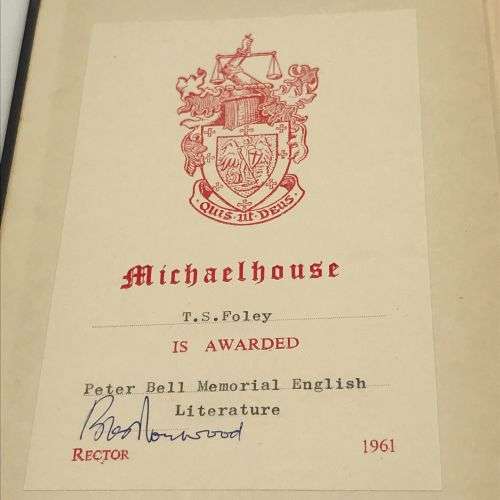 QUIS·UT·DEUS·
Michaelhouse
T.S.Foley
IS AWARDED
Peter Bell Memorial English
Literature
RECTOR 1961